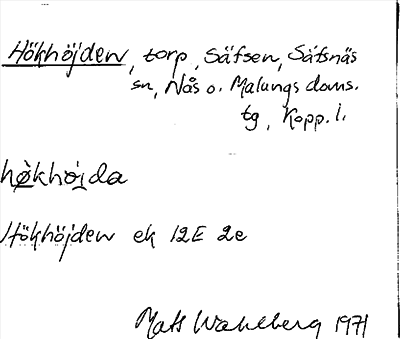 Hökhöjden, torp, Säfsen, Säfsnäs
sn, Nås o. Malungs doms.
tg, Kopp. l.
hø̀khøi̯da
Hökhöjden ek 12E 2e
Mats Wahlberg 1971